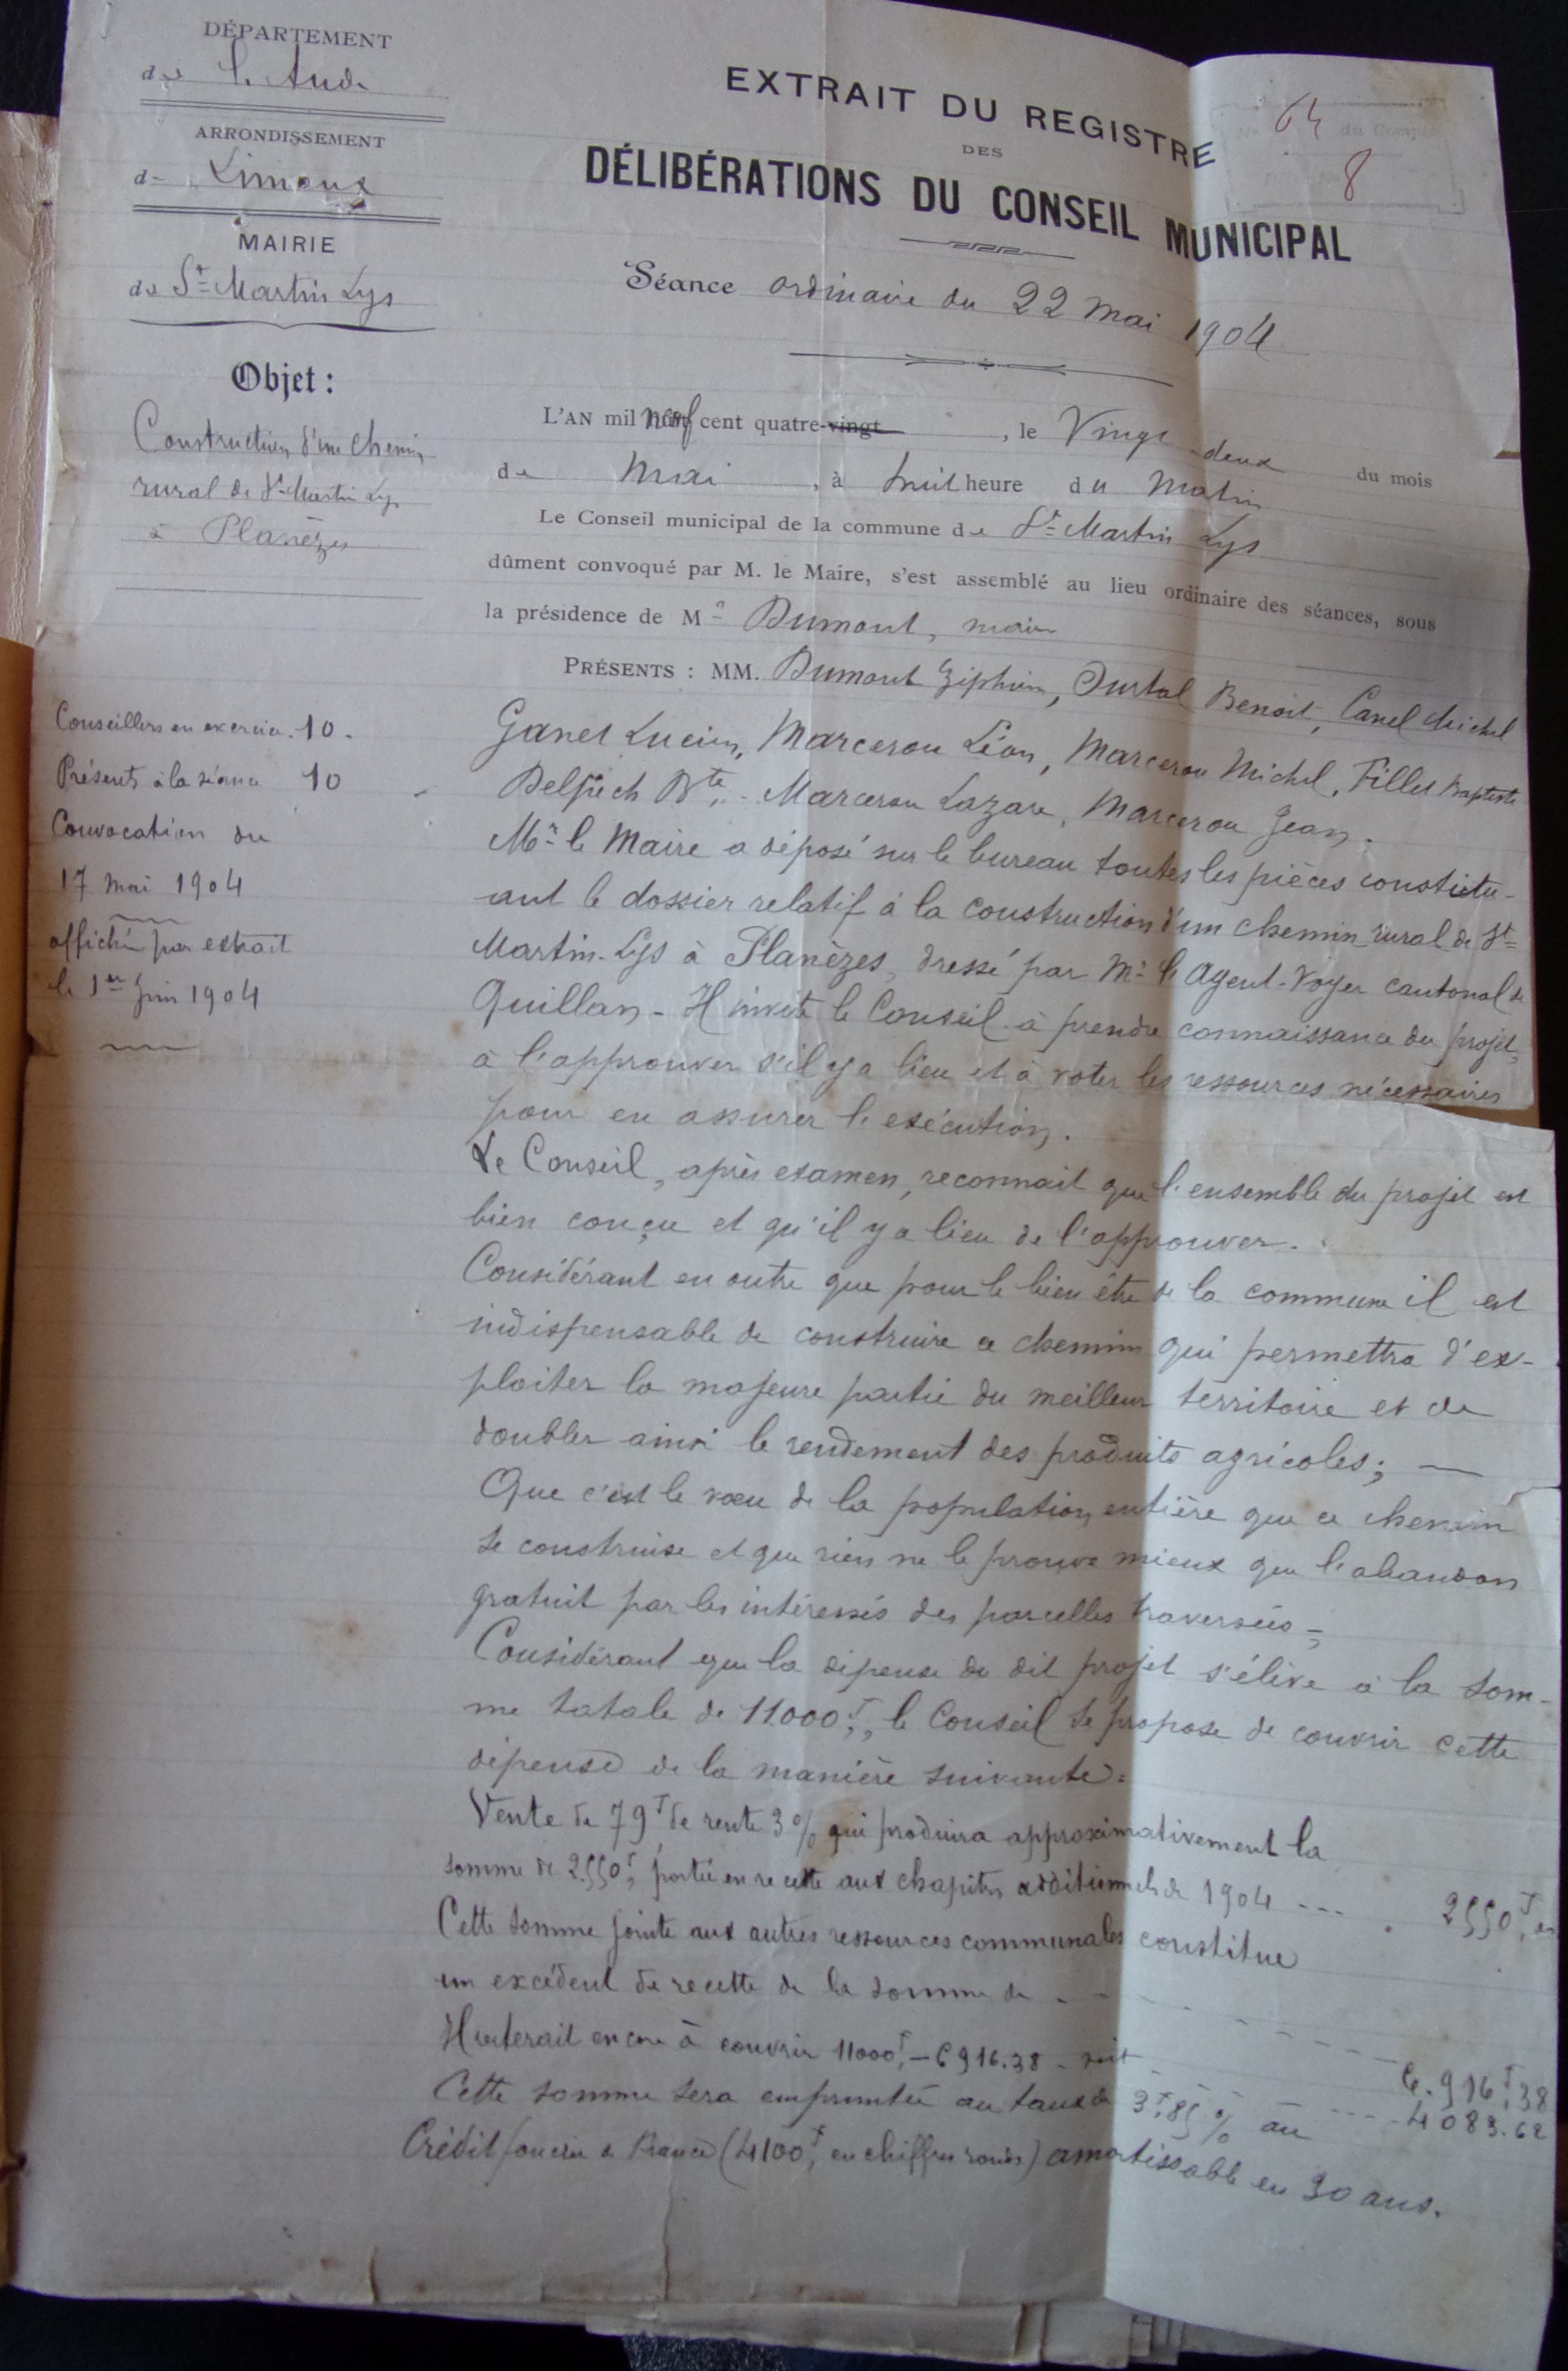 DÉPARTEMENT
de l'Aude
ARRONDISSEMENT
de Limoux
MAIRIE
de St Martin Lys
Objet :
Construction d'un chemin
rural de St Martin Lys
à Planèzes
Conseillers en exercice 10.
Présents à la séance 10
Convocation du
17 mai 1904
affichée par extrait
le 1er Juin 1904
EXTRAIT DU REGISTRE
DES
DÉLIBÉRATIONS DU CONSEIL MUNICIPAL
64 du Compte
8
Séance ordinaire du 22 Mai 1904
L'AN mil neuf cent quatre-vingt , le Vingt deux du mois
de Mai , à huit heure du Matin
Le Conseil municipal de la commune de St Martin Lys
dûment convoqué par M. le Maire, s'est assemblé au lieu ordinaire des séances, sous
la présidence de Mr Dumont, maire
PRÉSENTS : MM. Dumont Ziphirin, Burtal Benoit, Canel Michel
Ganet Lucien, Marcerou Léon, Marcerou Michel, Fillet Baptiste
Delpech Bte, Marcerou Lazare, Marcerou Jean.
Mr le Maire a déposé sur le bureau toutes les pièces constitu-
ant le dossier relatif à la construction d'un chemin rural de St
Martin-Lys à Planèzes, dressé par Mr l'Agent-Voyer cantonal de
Quillan - Il invite le Conseil à prendre connaissance du projet,
à l'approuver s'il y a lieu et à voter les ressources nécessaires
pour en assurer l'exécution.
Le Conseil, après examen, reconnait que l'ensemble du projet est
bien conçu et qu'il y a lieu de l'approuver.
Considérant en outre que pour le bien être de la commune il est
indispensable de construire ce chemin qui permettra d'ex-
ploiter la majeure partie du meilleur territoire et de
doubler ainsi le rendement des produits agricoles; —
Que c'est le vœu de la population entière que ce chemin
se construise et que rien ne le prouve mieux que l'abandon
gratuit par les intéressés des parcelles traversées -,
Considérant que la dépense du dit projet s'élève à la som-
me totale de 11.000f, le Conseil se propose de couvrir cette
dépense de la manière suivante :
Vente de 79f de rente 3% qui produira approximativement la
somme de 2550f, portée en recette aux chapitres additionnels de 1904 --- . 2550f,
Cette somme jointe aux autres ressources communales constitue
un excédent de recette de la somme de - - - - - - - 6.916f,38
Il resterait encore à couvrir 11000f, - 6916.38 - soit - - - - - 4083.62
Cette somme sera empruntée au taux de 3f,85 % au
Crédit foncier de France (4100f, en chiffres ronds) amortissable en 30 ans.